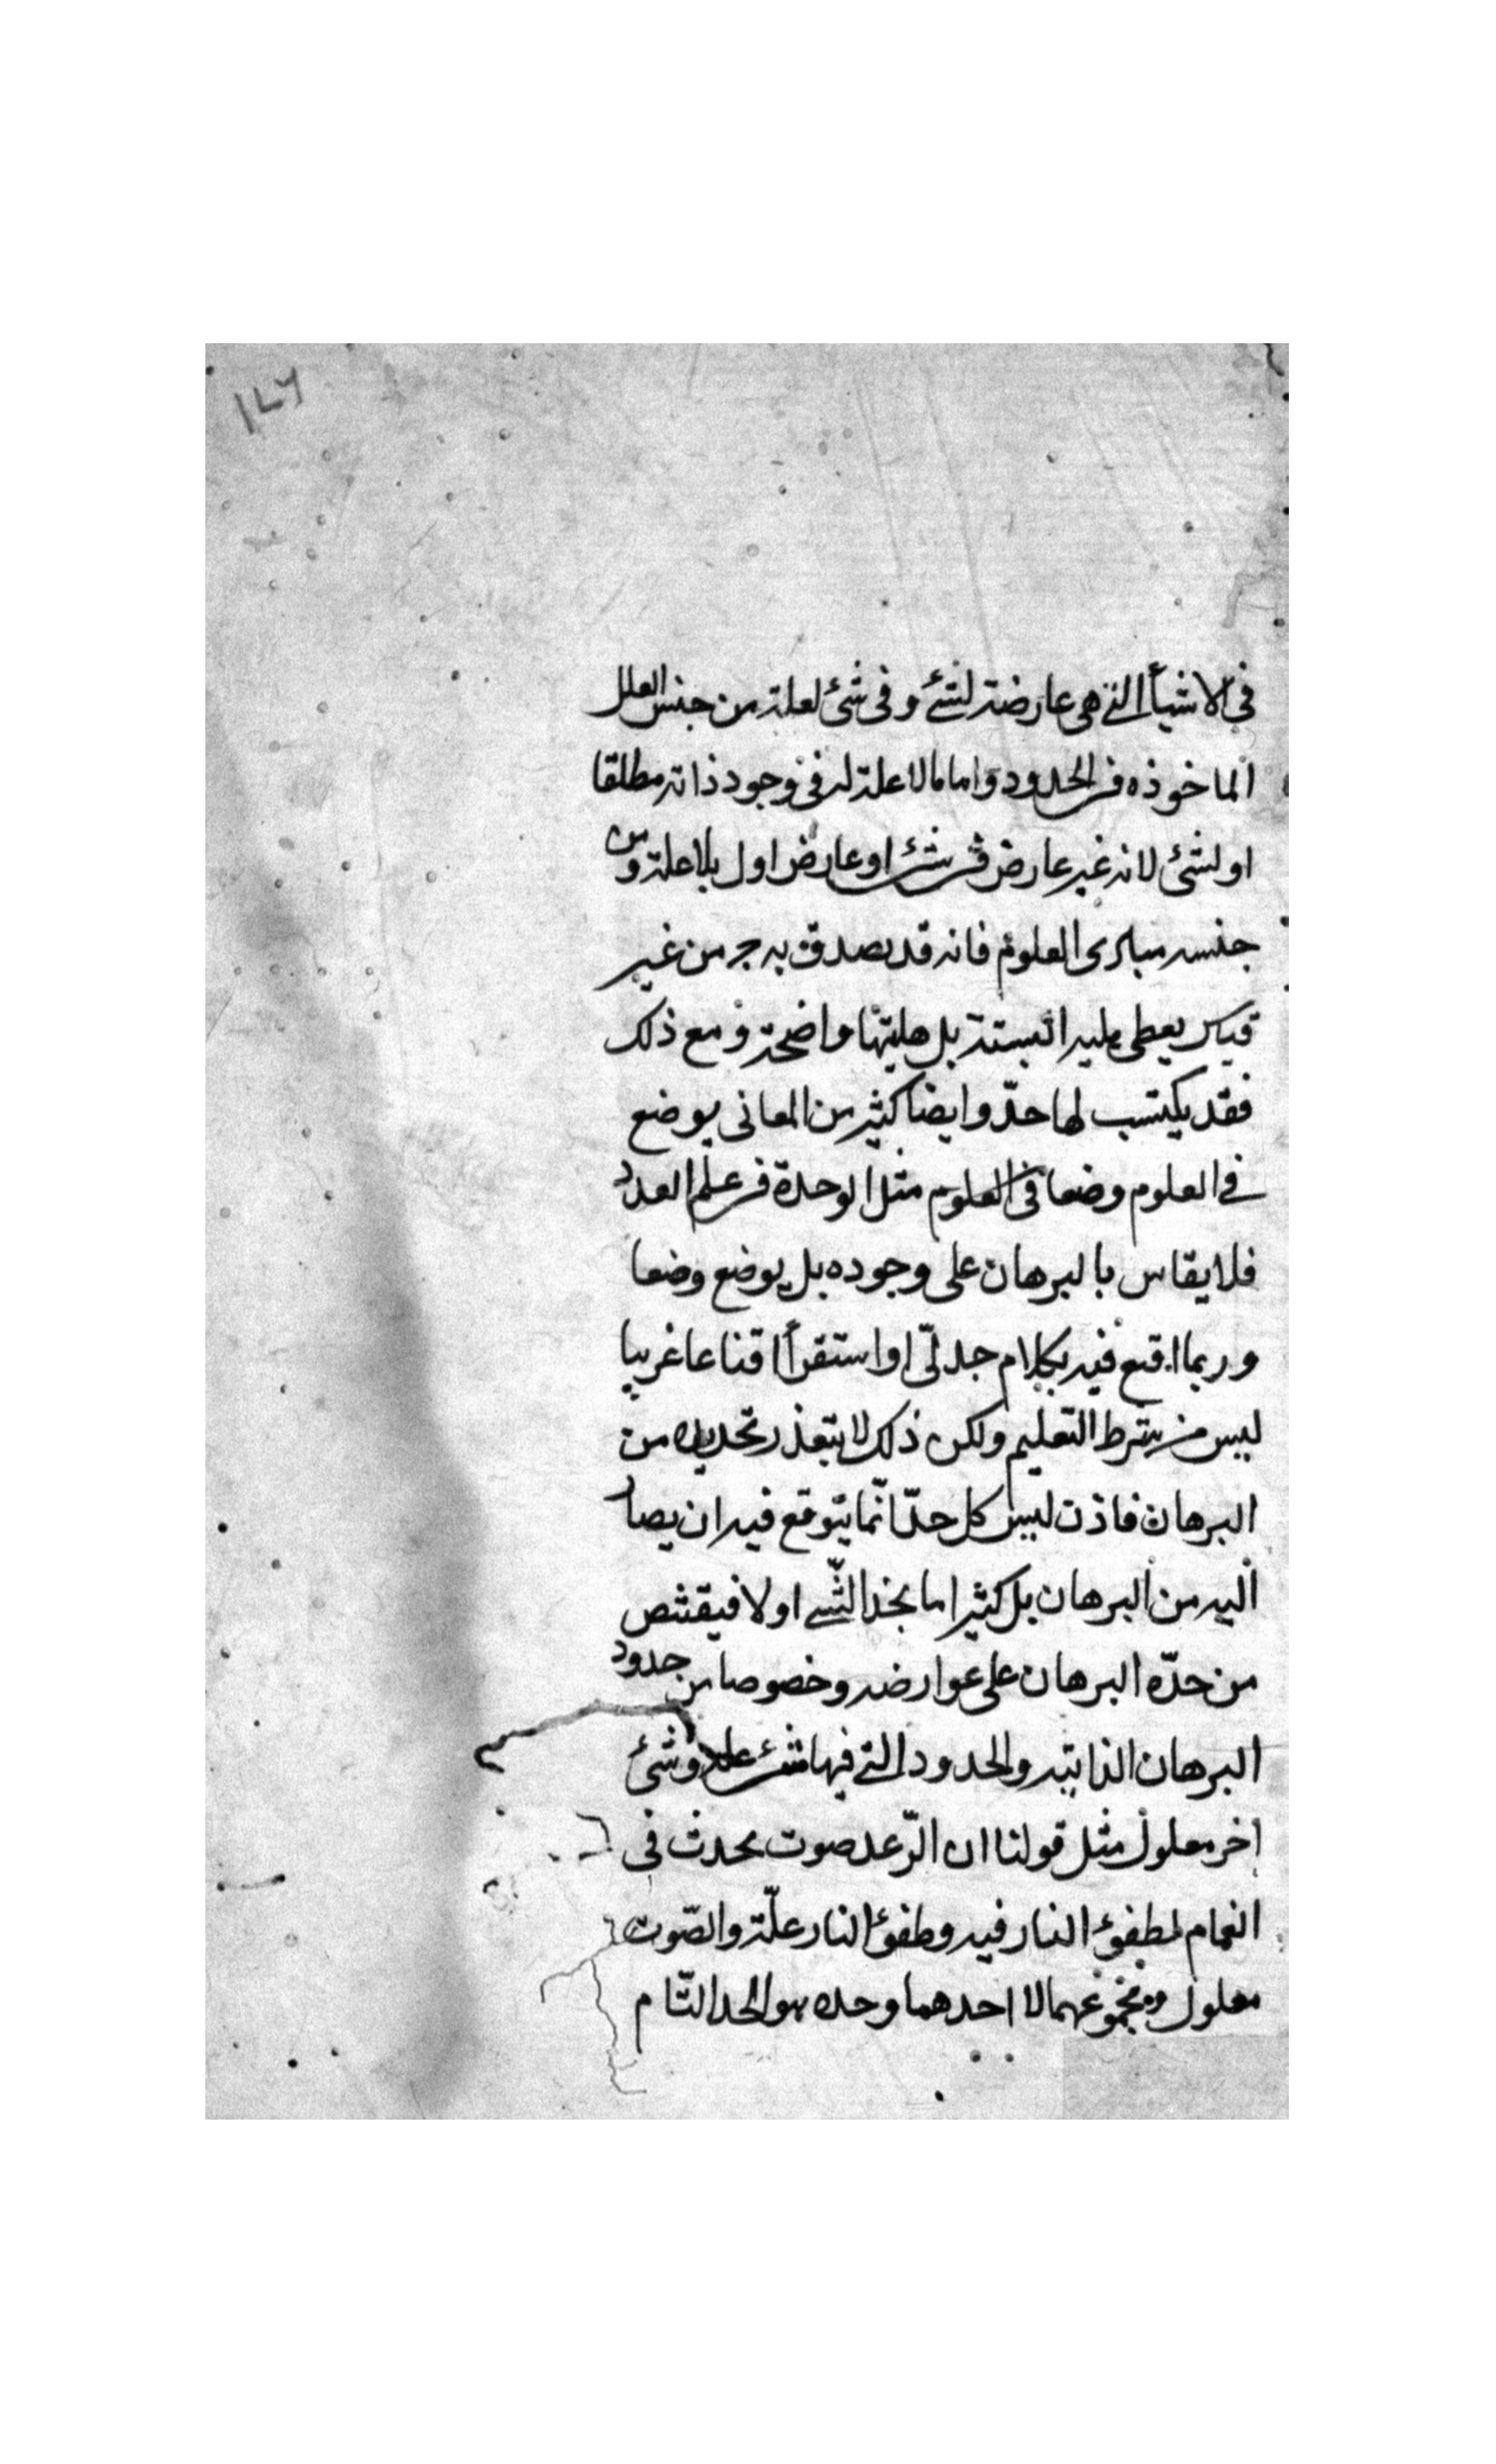 ١٧٦
في الاشيأ التي هي عارضة لشئ وفى شئ لعلة من جنس العلل
الماخوذه في الحدود واما مالا علة له فى وجود ذاته مطلقا
او لشئ لانه غير عارض في شئ او عارض اول بلا علة ومن
جنسه مبادى العلوم فانه قد يصدق به من غير
قياس يعطى هليه البتة بل هليتها واضحة ومع ذلك
فقد يكتسب لها حدّ وايضا كثير من المعانى يوضع
في العلوم وضعا فى العلوم مثل الوحدة في علم العدد
فلا يقاس بالبرهان على وجوده بل يوضع وضعا
وربما اقنع فيه بكلام جدلّى او استقرأ اقناعا غريبا
ليس من شرط التعليم ولكن ذلك لا يتعذر تحديده من
البرهان فاذن ليس كل حدّ انّما يتوقع فيه ان يصار
اليه من البرهان بل كثيرا ما يحد الشّے اولا فيقتنص
من حدّه البرهان على عوارضه وخصوصا من حدود
البرهان الذاتيه والحدود التي فيها شئ علة وشئ
اخر معلول مثل قولنا ان الرّعد صوت يحدث فى
الغمام لطفؤ النار فيه وطفؤ النار علّة والصّوت
معلول ومجموعهما لا احدهما وحده هو الحد التّام